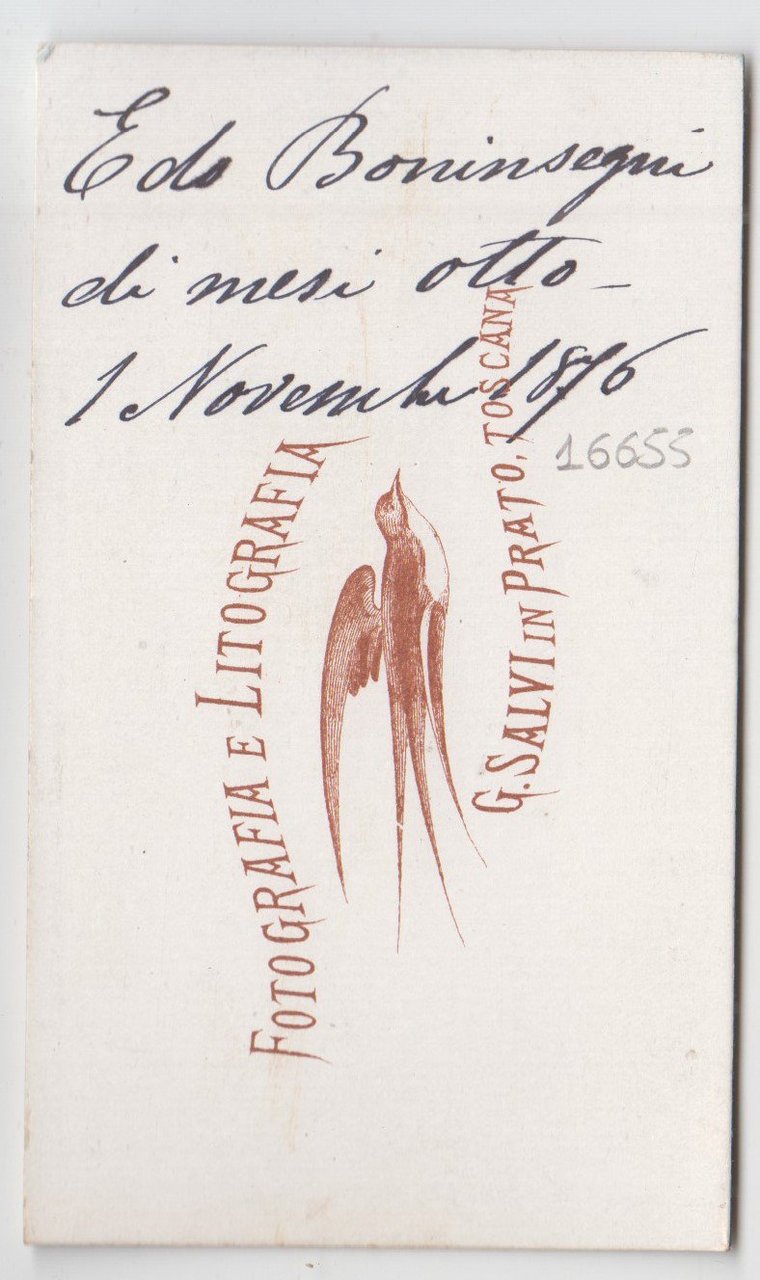 Edo Boninsegni
di mesi otto -
1 Novembre 1876
16655
FOTOGRAFIA E LITOGRAFIA
G. SALVI IN PRATO, TOSCANA